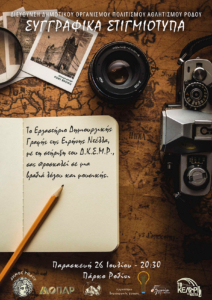 ΔΙΕΥΘΥΝΣΗ ΔΗΜΟΤΙΚΟΥ ΟΡΓΑΝΙΣΜΟΥ ΠΟΛΙΤΙΣΜΟΥ ΑΘΛΗΤΙΣΜΟΥ ΡΟΔΟΥ
ΣΥΓΓΡΑΦΙΚΑ ΣΤΙΓΜΙΟΤΥΠΑ
Το Εργαστήριο Δημιουργικής
Γραφής της Ειρήνης
με τη στήριξη του
σας προσκαλεί σε μια
βραδιά λόγου και μουσικής.
Παρασκευή 26 Ιουλίου - 20:30
Πάρκο Ροδίνι